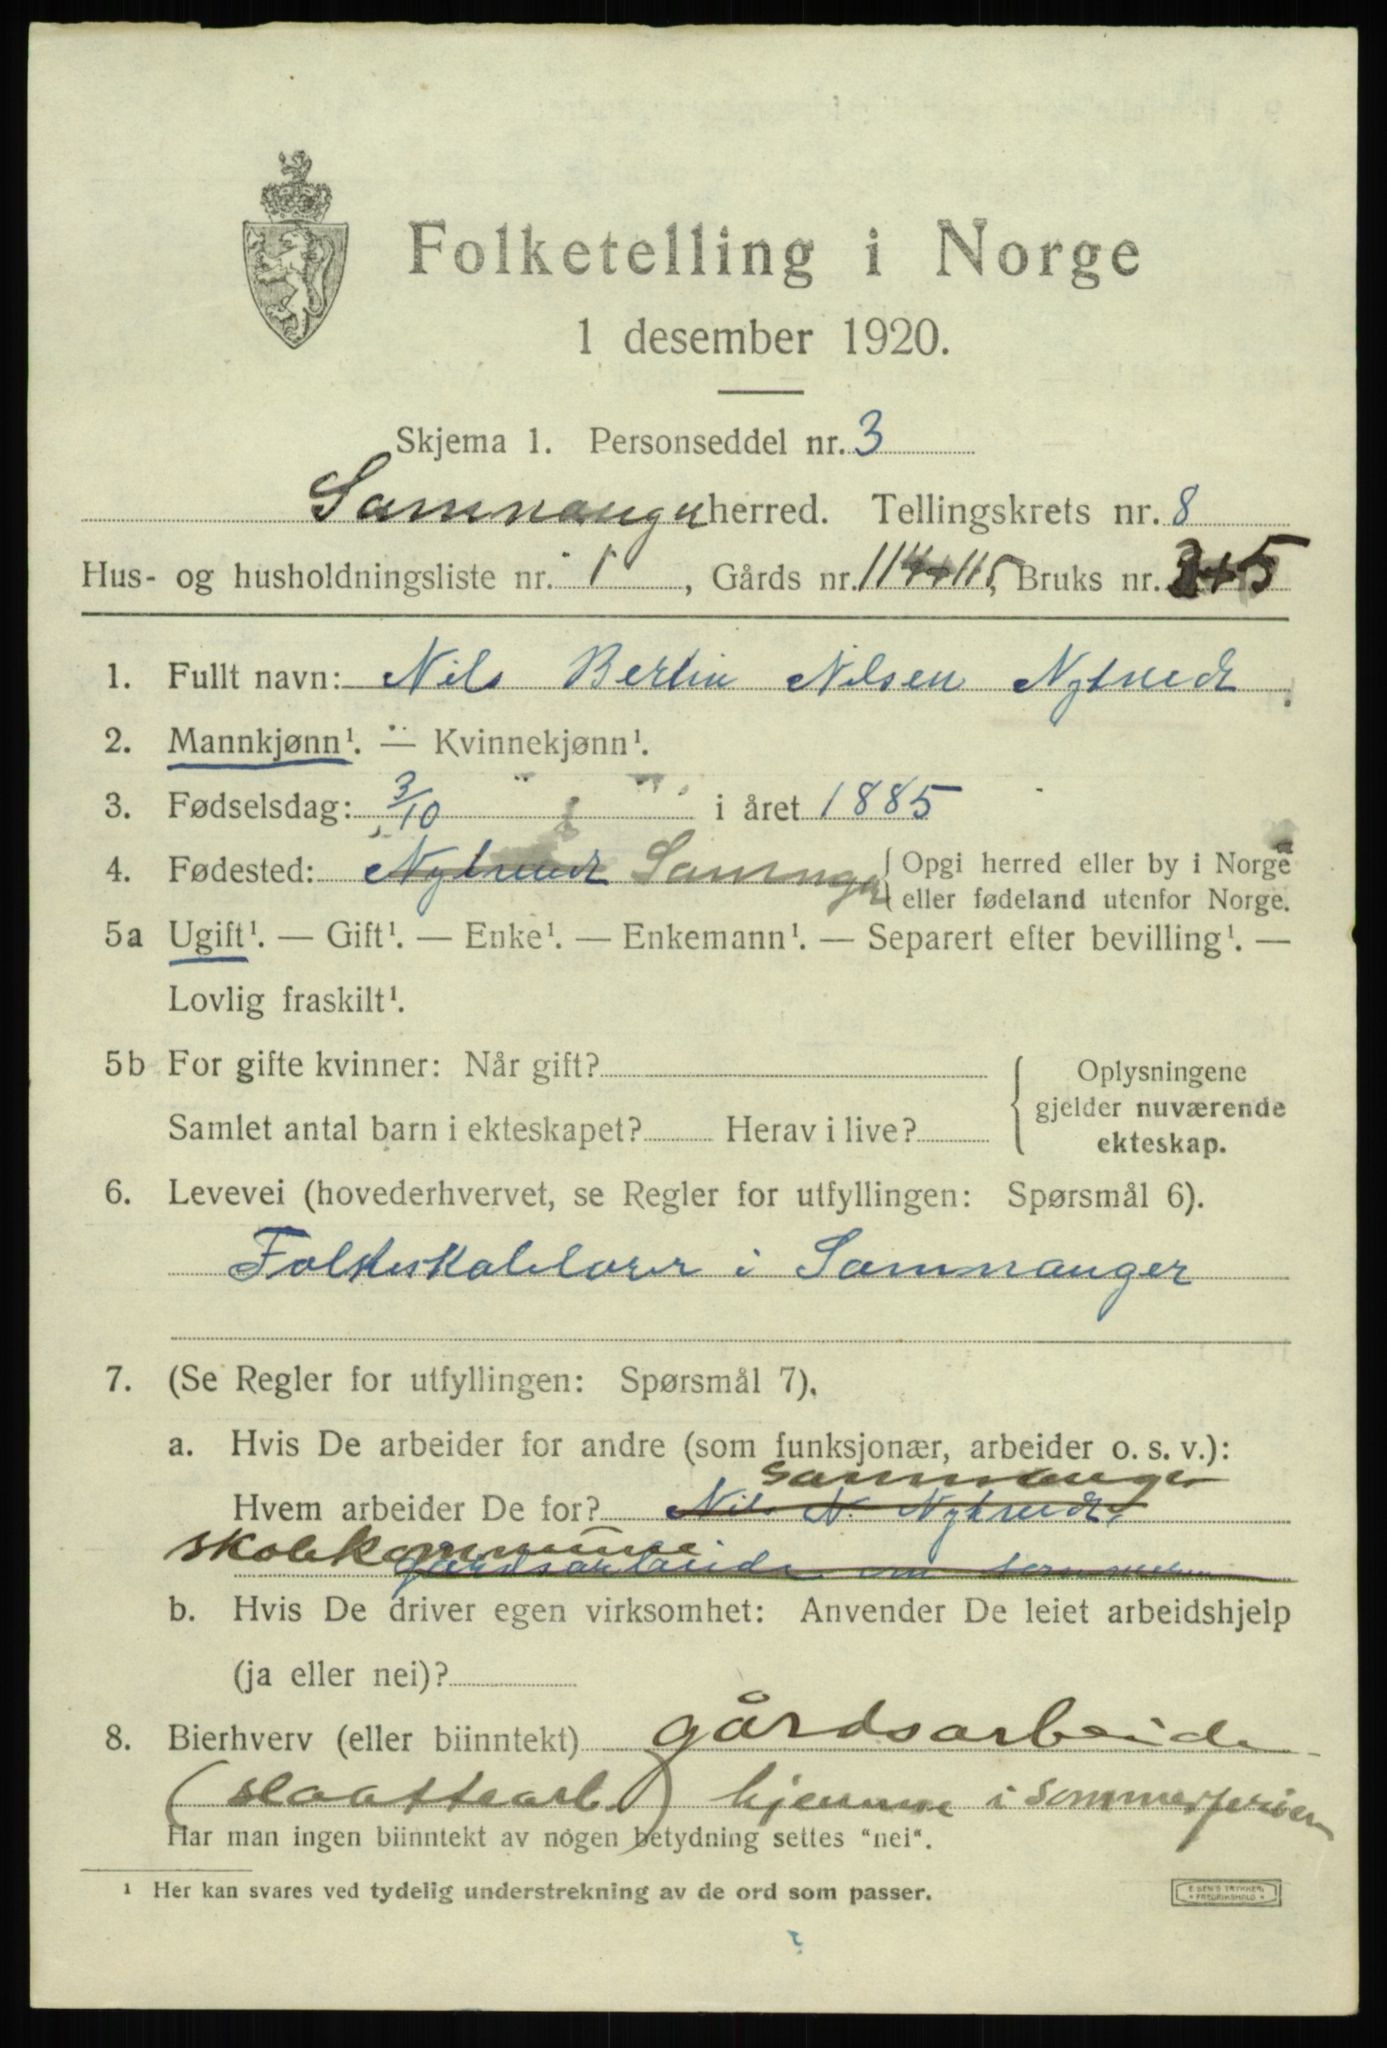 Folketelling i Norge
1 desember 1920.
Skjema 1. Personseddel nr. 3
Samnanger herred. Tellingskrets nr. 8
Hus- og husholdningsliste nr. 1, Gårds nr. 114+115, Bruks nr. 3+5
1. Fullt navn: Nils Bertin Nilsen Nytredt
2. Mannkjønn¹. — Kvinnekjønn¹.
3. Fødselsdag: 3/10 i året 1885
4. Fødested: Nytredt Samnager { Opgi herred eller by i Norge
eller fødeland utenfor Norge.
5a Ugift¹. — Gift¹. — Enke¹. — Enkemann¹. — Separert efter bevilling¹. —
Lovlig fraskilt¹.
5b For gifte kvinner: Når gift?
Samlet antal barn i ekteskapet? Herav i live?
Oplysningene
gjelder nuværende
ekteskap.
6. Levevei (hovederhvervet, se Regler for utfyllingen: Spørsmål 6).
Folkeskolelærer i Samnanger
7. (Se Regler for utfyllingen: Spørsmål 7).
a. Hvis De arbeider for andre (som funksjonær, arbeider o. s. v.):
Samnanger
Hvem arbeider De for? Nils N. Nytredt,
skolekommune
gårdsarbeide om sommeren
b. Hvis De driver egen virksomhet: Anvender De leiet arbeidshjelp
(ja eller nei)?
8. Bierhverv (eller biinntekt) gårdsarbeide
(slaattearb.) hjemme i sommerferien
Har man ingen biinntekt av nogen betydning settes "nei".
¹ Her kan svares ved tydelig understrekning av de ord som passer.